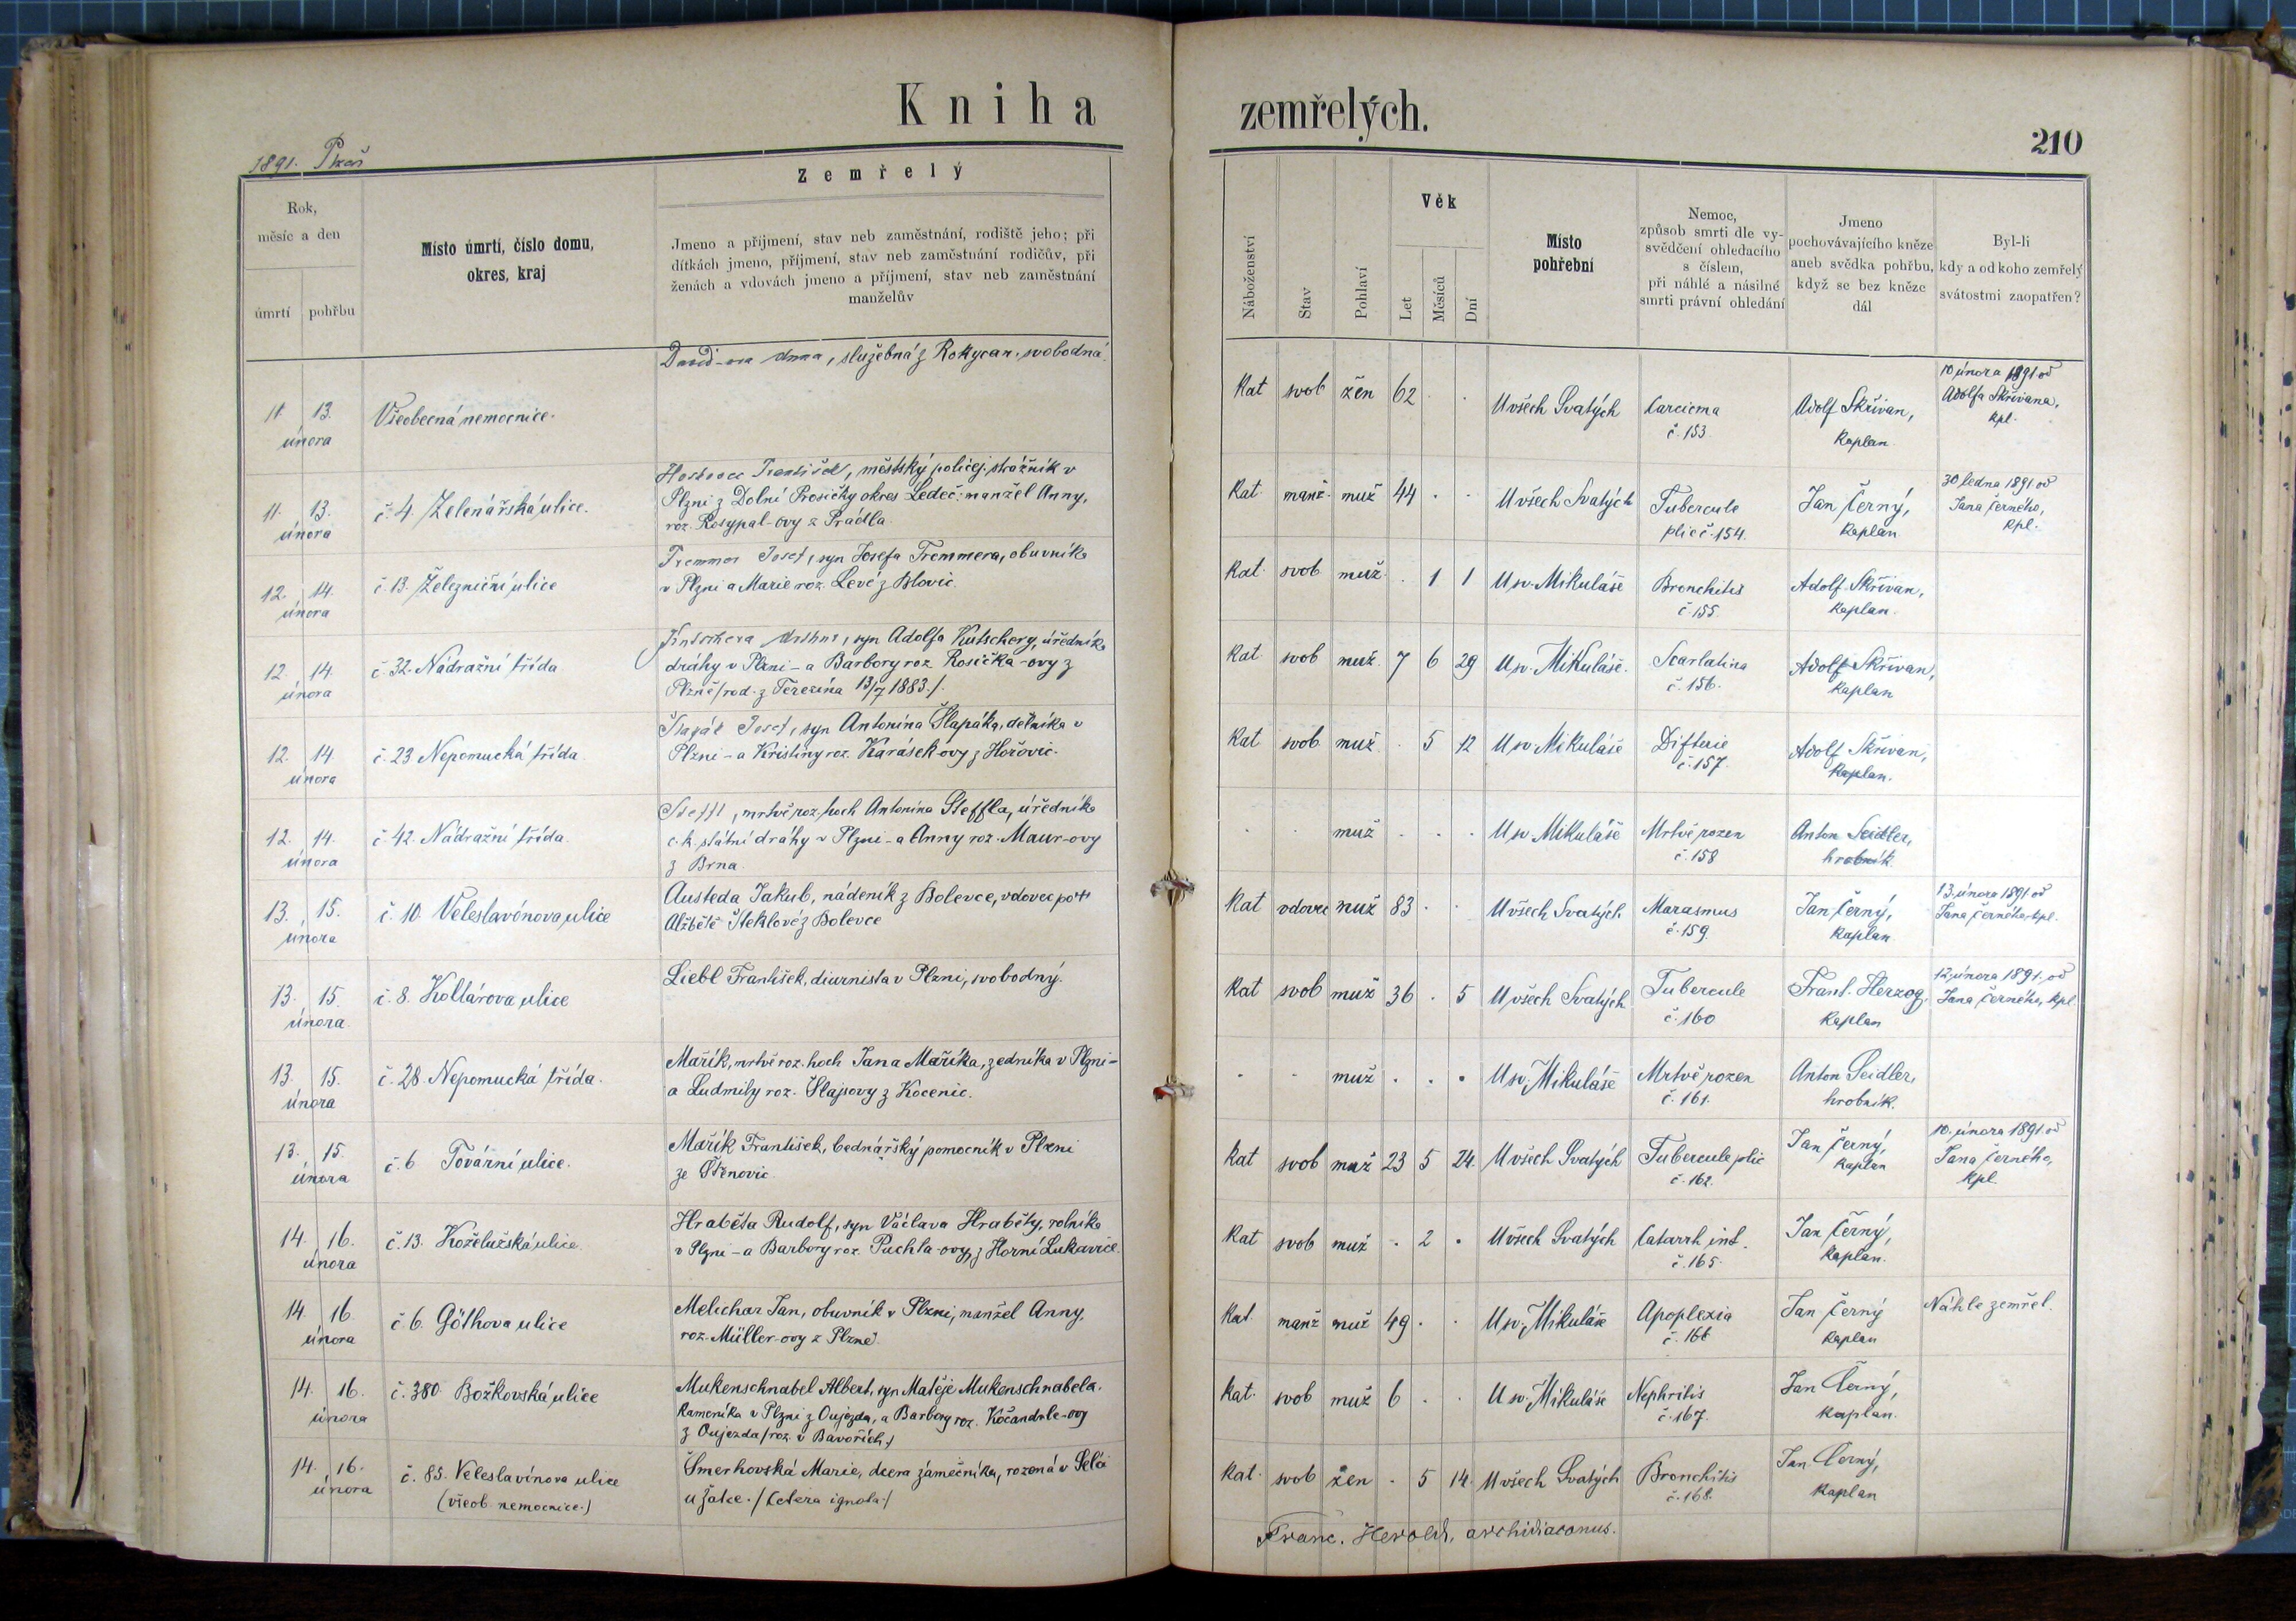 Kniha
zemřelých.
210
1891. Plzeň
Rok,
měsíc a den
úmrtí
pohřbu
Místo úmrtí, číslo domu,
okres, kraj
Zemřelý
Jmeno a přijmení, stav neb zaměstnání, rodiště jeho; při
dítkách jmeno, příjmení, stav neb zaměstnání rodičův, při
ženách a vdovách jmeno a příjmení, stav neb zaměstnání
manželův
Náboženství
Stav
Pohlaví
Věk
Let
Měsíců
Dní
Místo
pohřební
Nemoc,
způsob smrti dle vy-
svědčení ohledacího
s číslem,
při náhlé a násilné
smrti právní ohledání
Jmeno
pochovávajícího kněze
aneb svědka pohřbu,
když se bez kněze
dál
Byl-li
kdy a od koho zemřelý
svátostmi zaopatřen?
11. 13.
února
Všeobecná nemocnice.
David-ova Anna, služebná z Rokycan, svobodná.
Kat svob žen 62 . .
U všech Svatých
Carcicma
č. 153.
Adolf Skřivan,
kaplan
10 února 1891 od
Adolfa Skřivana,
kpl.
11. 13.
února
č. 4 Zelenářská ulice.
František, městský policej. strážník v
Plzni z Dolní Prosičky okres Ledeč: manžel Anny,
roz. Rosypal-ovy z Prádla.
Kat. manž. muž 44 . .
U všech Svatých
Tubercule
plic č. 154.
Jan Černý,
kaplan.
30 ledna 1891. od
Jana Černého,
kpl.
12. 14.
února
č. 13. Železniční ulice
Tremmer Josef, syn Josefa Tremmera, obuvníka
v Plzni a Marie roz. Levé z Blovic.
Kat. svob muž . 1 1
U sv. Mikuláše
Bronchitis
č. 155.
Adolf Skřivan,
kaplan.
12. 14.
února
č. 32. Nádražní třída
Kutschera Arthur, syn Adolfa Kutschery, úředníka
dráhy v Plzni - a Barbory roz. Rosička-ovy z
Plzně /rod. z Terezína 13/7 1883./.
Kat svob muž. 7 6 29
U sv. Mikuláše.
Scarlatina
č. 156.
Adolf Skřivan,
kaplan
12. 14.
února
č. 23 Nepomucká třída.
Šlapák Josef, syn Antonína Šlapáka, dělníka v
Plzni - a Kristiny roz. Karásek-ovy z Hořovic.
Kat svob muž . 5 12
U sv. Mikuláše
Difterie
č. 157.
Adolf Skřivan,
kaplan.
12. 14.
února
č. 42. Nádražní třída.
Steffl, mrtvě roz. hoch Antonína Steffla, úředníka
c. k. státní dráhy v Plzni - a Anny roz. Maur-ovy
z Brna.
. . muž . . .
U sv. Mikuláše
Mrtvě rozen
č. 158
Anton Seidler,
hrobník.
13. 15.
února
č. 10. Veleslavínova ulice
Austeda Jakub, nádeník z Bolevce, vdovec po †
Alžbětě Šteklové z Bolevce
Kat vdovec muž 83 . .
U všech Svatých
Marasmus
č. 159.
Jan Černý,
kaplan
13. února 1891. od
Jana Černého, kpl.
13. 15.
února.
č. 8. Kollárova ulice
Liebl František, diurnista v Plzni, svobodný.
Kat svob muž 36 . 5
U všech Svatých
Tubercule
č. 160
Frant. Herzog,
kaplan
12. února 1891. od
Jana Černého, kpl.
13. 15.
února
č. 28. Nepomucká třída.
Mařík, mrtvě roz. hoch Jana Maříka, zedníka v Plzni -
a Ludmily roz. Šlajsovy z Kocenic.
. . muž . . .
U sv. Mikuláše
Mrtvě rozen
č. 161.
Anton Seidler,
hrobník.
13. 15.
února
č. 6 Tovární ulice.
Mařík František, bednářský pomocník v Plzni
ze Štěnovic
Kat svob muž 23 5 24.
U všech Svatých
Tubercule plic
č. 162.
Jan Černý,
kaplan
10. února 1891. od
Jana Černého,
kpl.
14. 16.
února
č. 13. Koželužská ulice.
Hraběta Rudolf, syn Václava Hraběty, rolníka
v Plzni - a Barbory roz. Puchta-ovy, z Horní Lukavice.
Kat svob muž . 2 .
U všech Svatých
Catarrh int.
č. 165.
Jan Černý,
kaplan.
14. 16.
února
č. 6. Göthova ulice
Melichar Jan, obuvník v Plzni, manžel Anny,
roz. Müller-ovy z Plzně.
Kat. manž muž 49 . .
U sv. Mikuláše
Apoplexia
č. 166
Jan Černý
kaplan
Náhle zemřel.
14. 16.
února
č. 380. Božkovská ulice
Mukenschnabel Albert, syn Matěje Mukenschnabela,
kameníka v Plzni z Oujezda, a Barbory roz. Kočandrle-ovy
z Oujezda /roz. v Bavořích./
Kat. svob muž 6 . .
U sv. Mikuláše
Nephritis
č. 167.
Jan Černý,
kaplan.
14. 16.
února
č. 85. Veleslavínova ulice
(všeob. nemocnice.)
Šmerhovská Marie, dcera zámečníka, rozená v
u Žatce. /Cetera ignota./
Kat. svob žen . 5 14.
U všech Svatých
Bronchitis
č. 168.
Jan Černý,
kaplan
Franc. Herold, archidiaconus.